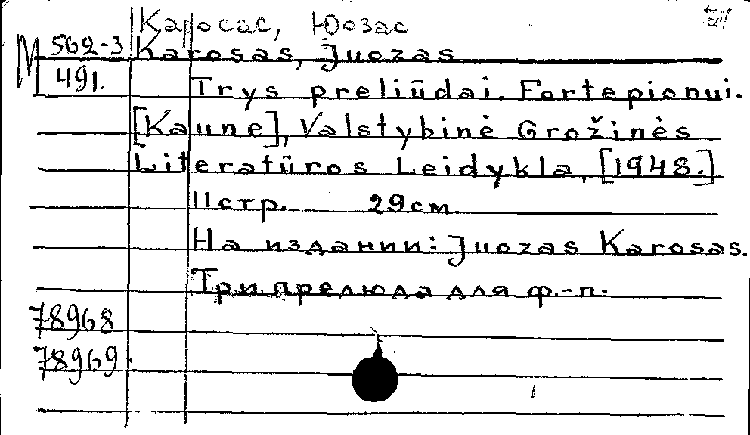 Каросас, Юозас
М 562-3 Karosas, Juozas
491. Trys preliūdai. Fortepionui.
[Kaune], Valstybinė Grožinės
Literatūros Leidykla, [1948.]
11 стр. 29 см
На издании: Juozas Karosas.
Три прелюда для ф.-п.
78968
78969.